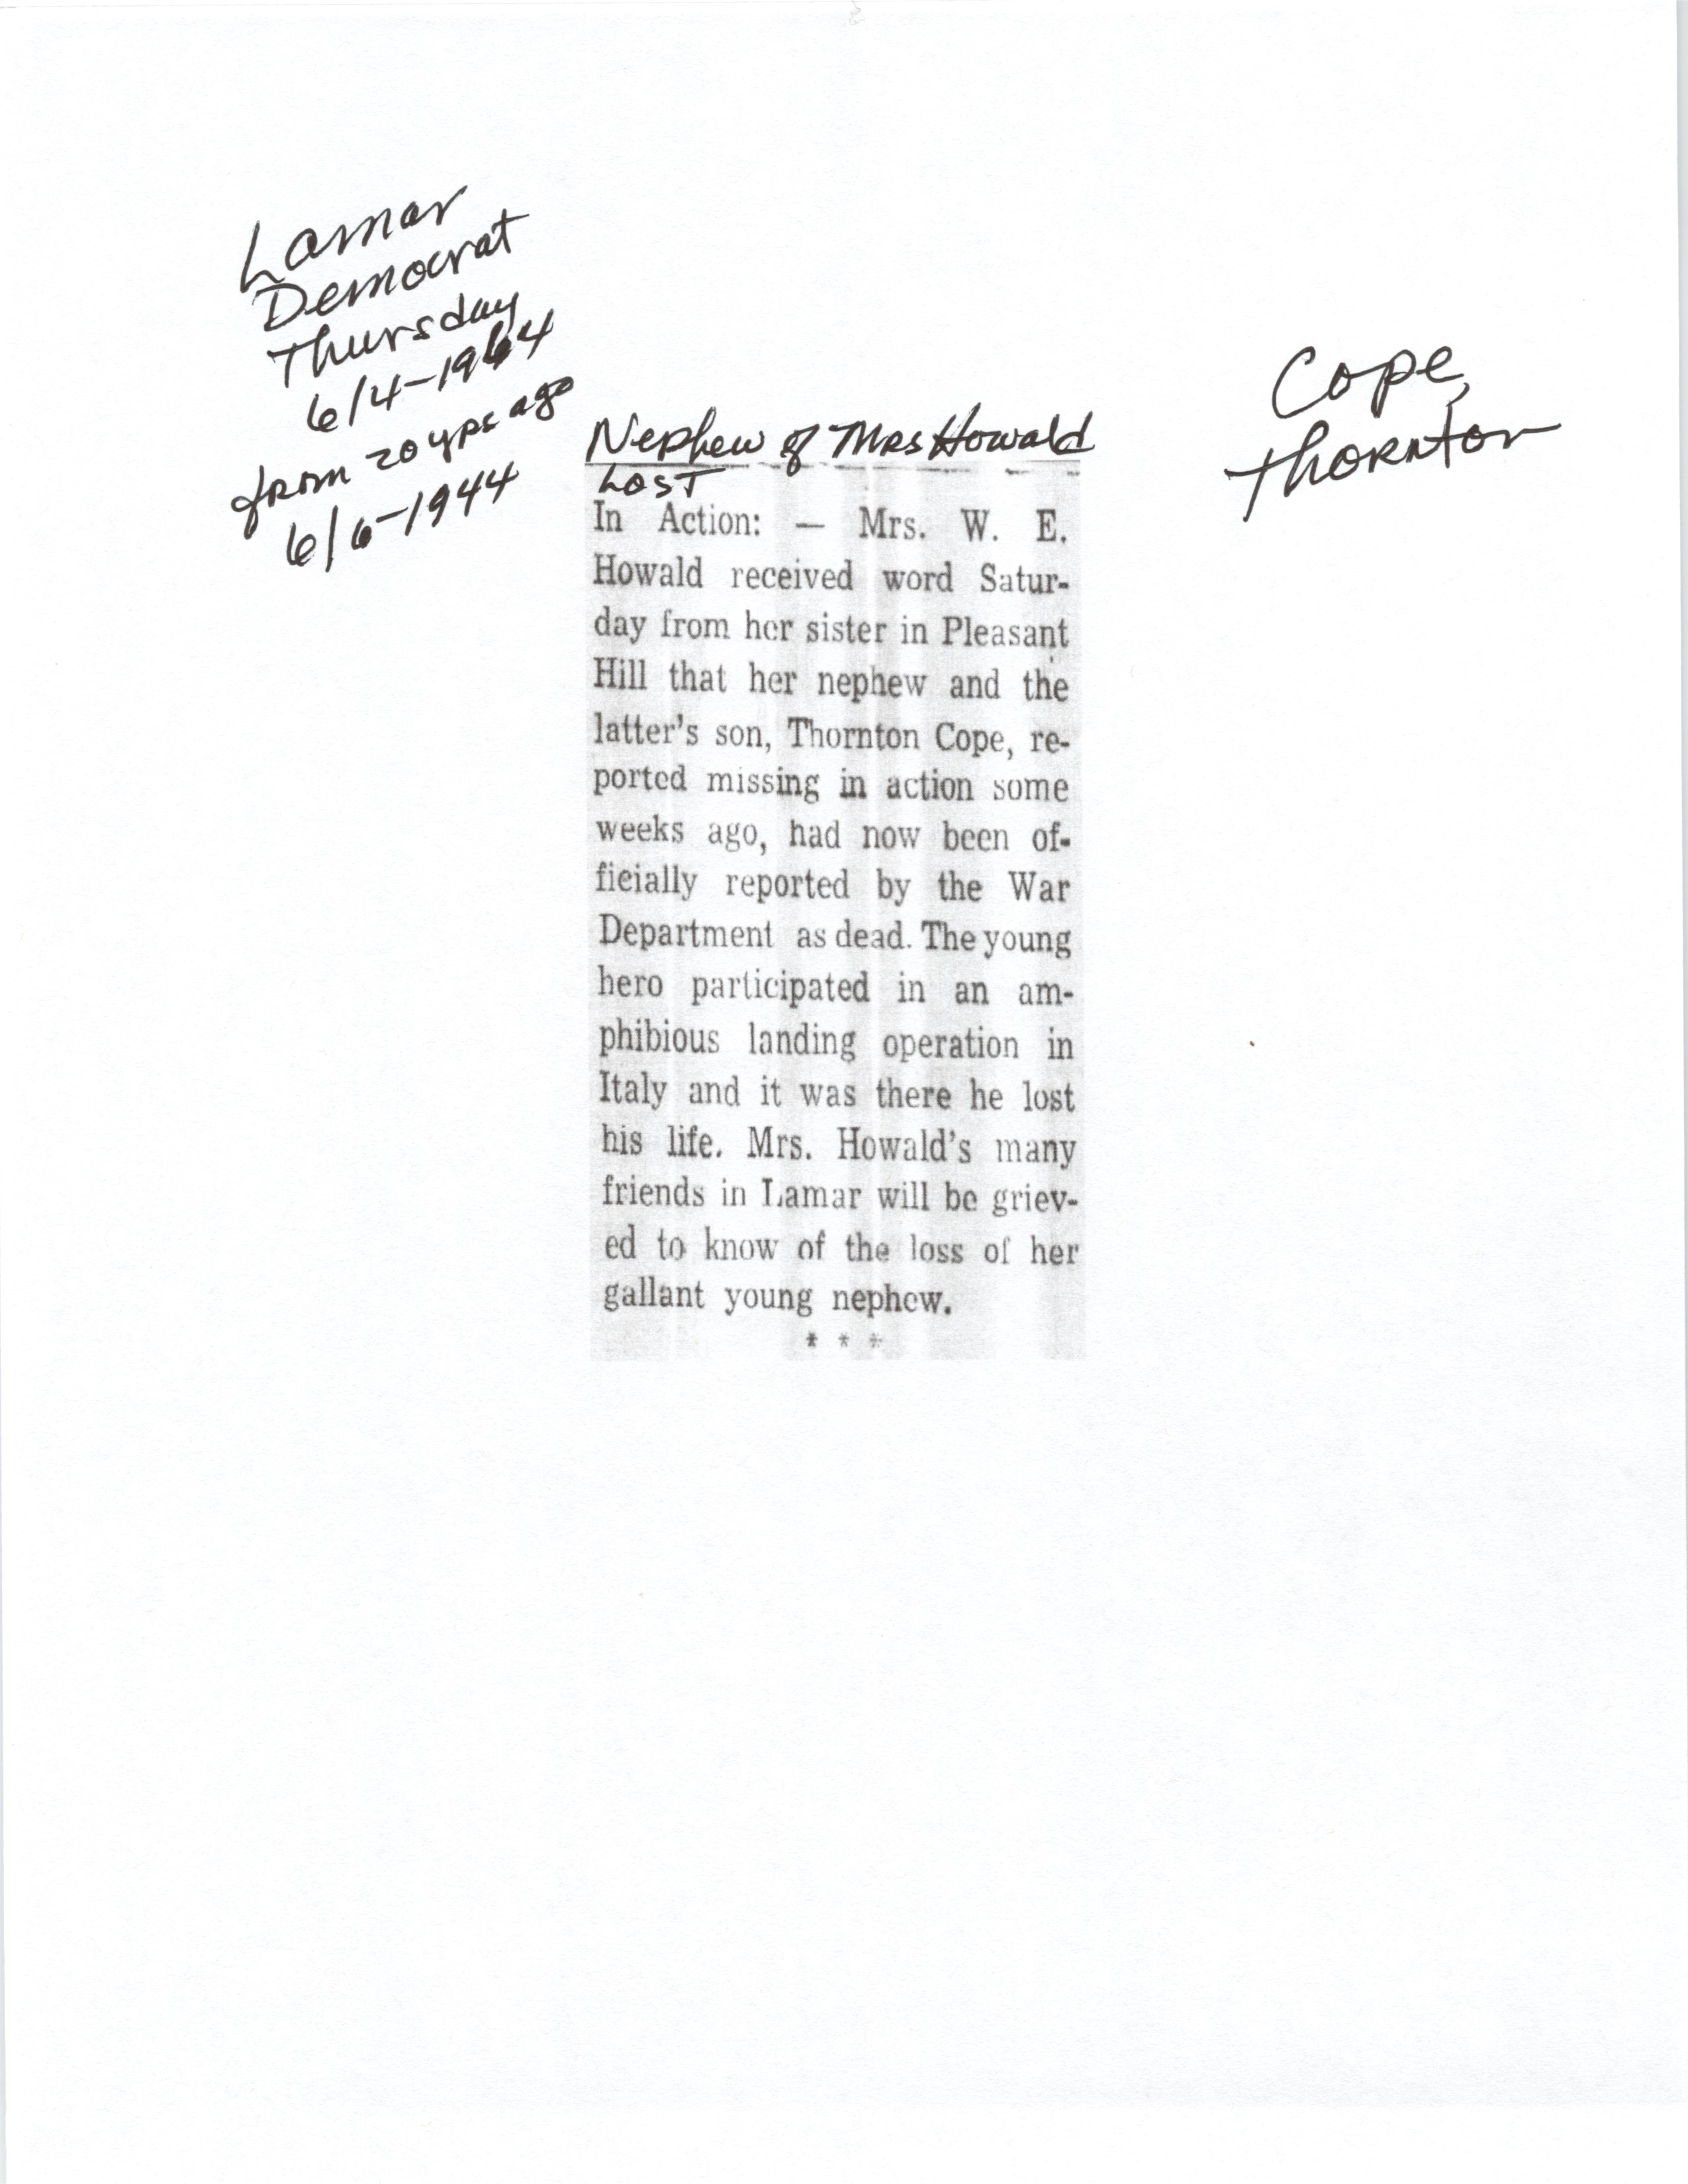 Lamar
Democrat
Thursday
6/4-1964
from 20 yrs ago
6/6-1944
Cope,
Thornton
Nephew of Mrs Howald
Lost
In Action: — Mrs. W. E.
Howald received word Satur-
day from her sister in Pleasant
Hill that her nephew and the
latter's son, Thornton Cope, re-
ported missing in action some
weeks ago, had now been of-
ficially reported by the War
Department as dead. The young
hero participated in an am-
phibious landing operation in
Italy and it was there he lost
his life. Mrs. Howald's many
friends in Lamar will be griev-
ed to know of the loss of her
gallant young nephew.
* * *